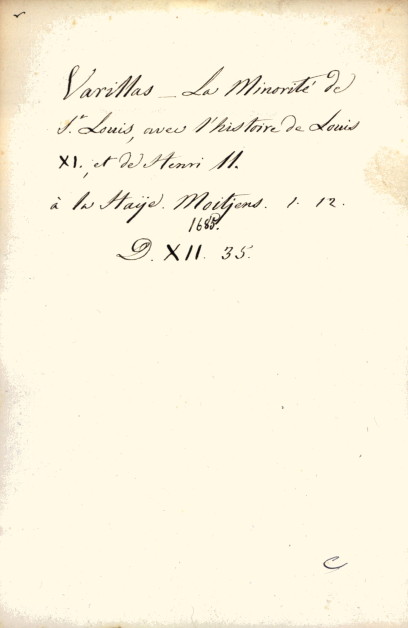 Varillas — La Minorité de
S.t Louis, avec l'histoire de Louis
XI. et de Henri II.
à la Haÿe. Moitjens. 1. 12.
1685.
D. XII. 35.
C